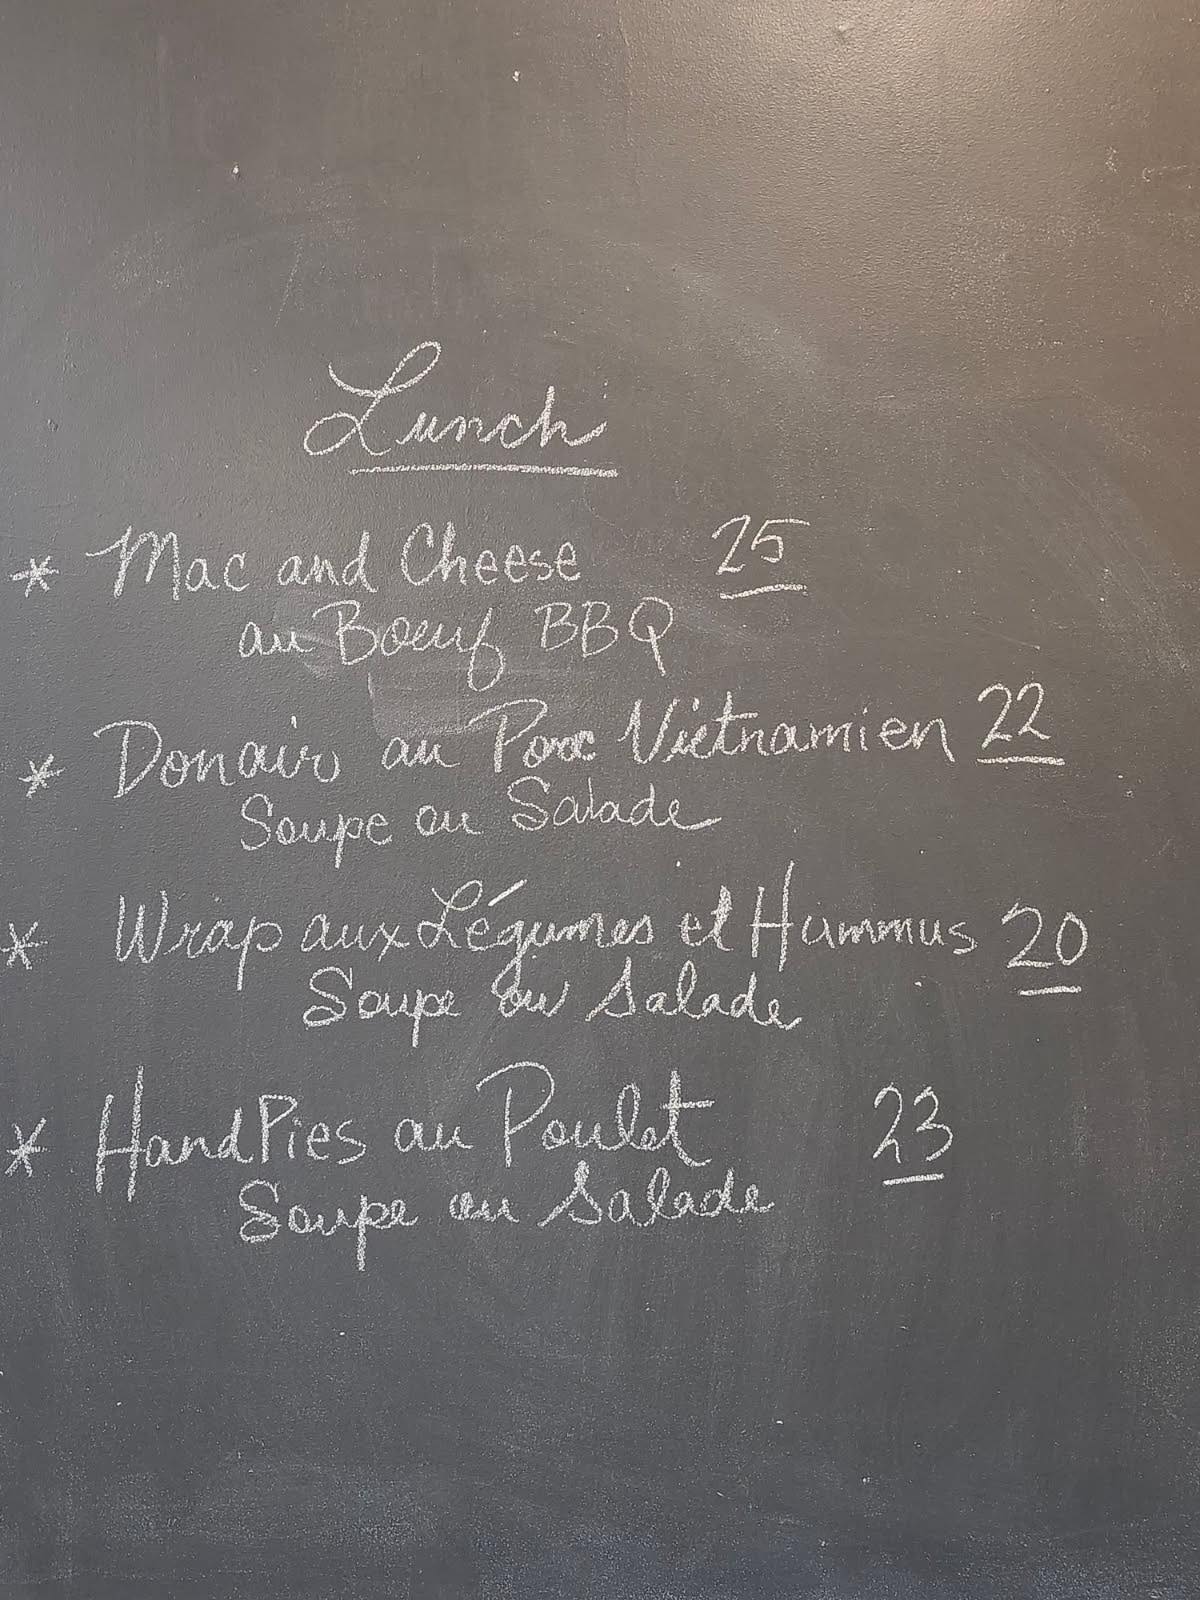 Lunch
* Mac and Cheese 25
au Boeuf BBQ
* Donair au Porc Vietnamien 22
Soupe ou Salade
* Wrap aux Légumes et Hummus 20
Soupe ou Salade
* HandPies au Poulet 23
Soupe ou Salade